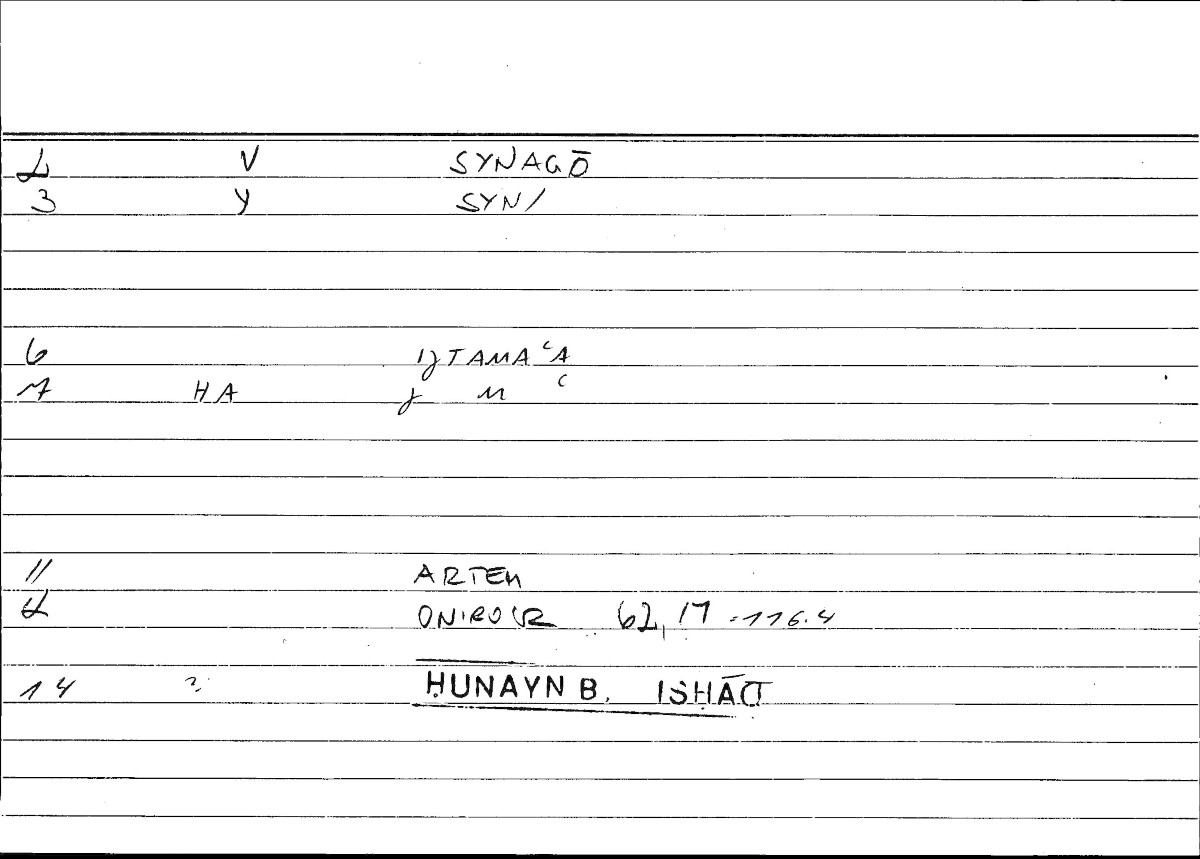 2 V SYNAGŌ
3 Y SYN/
6 IJTAMAʿA
7 HA J M ʿ
11 ARTEM
12 ONIROCR 62,17 - 116.4
14 2 ḤUNAYN B. ISḤĀQ